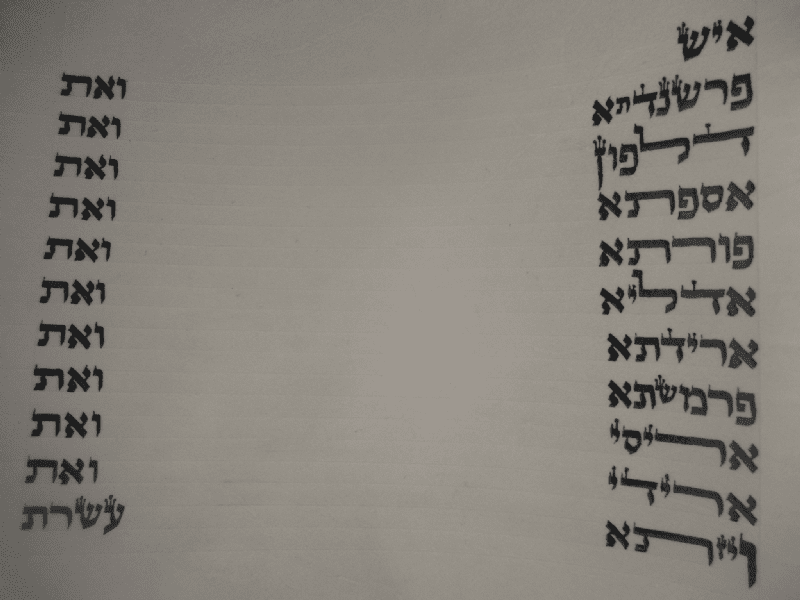 איש ואת
פרשנדתא ואת
דלפון ואת
אספתא ואת
פורתא ואת
אדליא ואת
ארידתא ואת
פרמשתא ואת
אריסי ואת
ארידי ואת
ויזתא עשרת